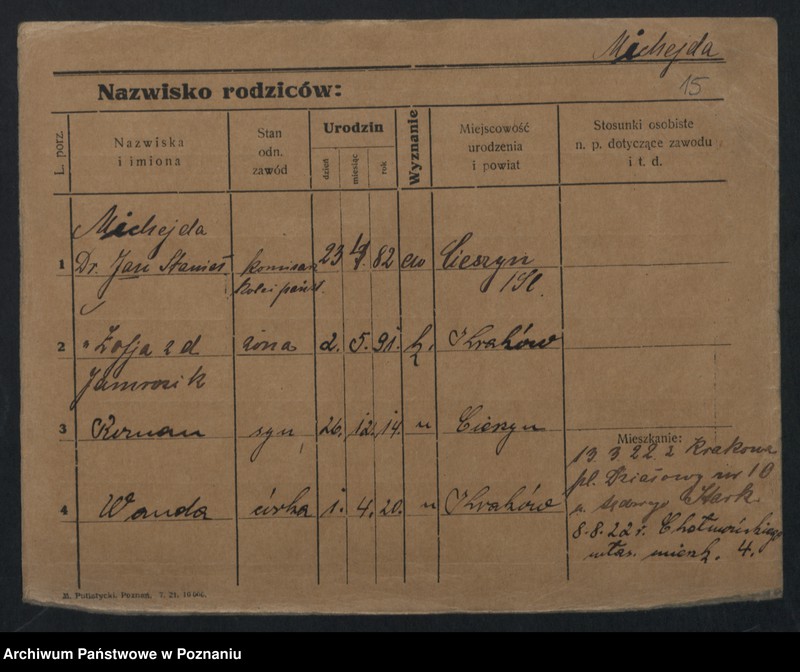 Michejda
15
Nazwisko rodziców:
L. porz.
Nazwiska
i imiona
Stan
odn.
zawód
Urodzin
dzień
miesiąc
rok
Wyznanie
Miejscowość
urodzenia
i powiat
Stosunki osobiste
n. p. dotyczące zawodu
i t. d.
Michejda
1 Dr. Jan Stanisł. komisarz 23 82 Cieszyn
kolei państ. /Śl.
2 " Zofja z d żona 2. 5. 91. k. Kraków
Jamrozik
3 Roman syn 26. 12. 14. " Cieszyn
Mieszkanie:
13. 3. 22. z Krakowa
pl. Działowy nr 10
4 Wanda córka 1. 4. 20. " Kraków
8. 8. 22 r. Chełmońskiego
włas. mieszk. 4.
M. Putiatycki, Poznań, 7. 21. 10 000.
Archiwum Państwowe w Poznaniu